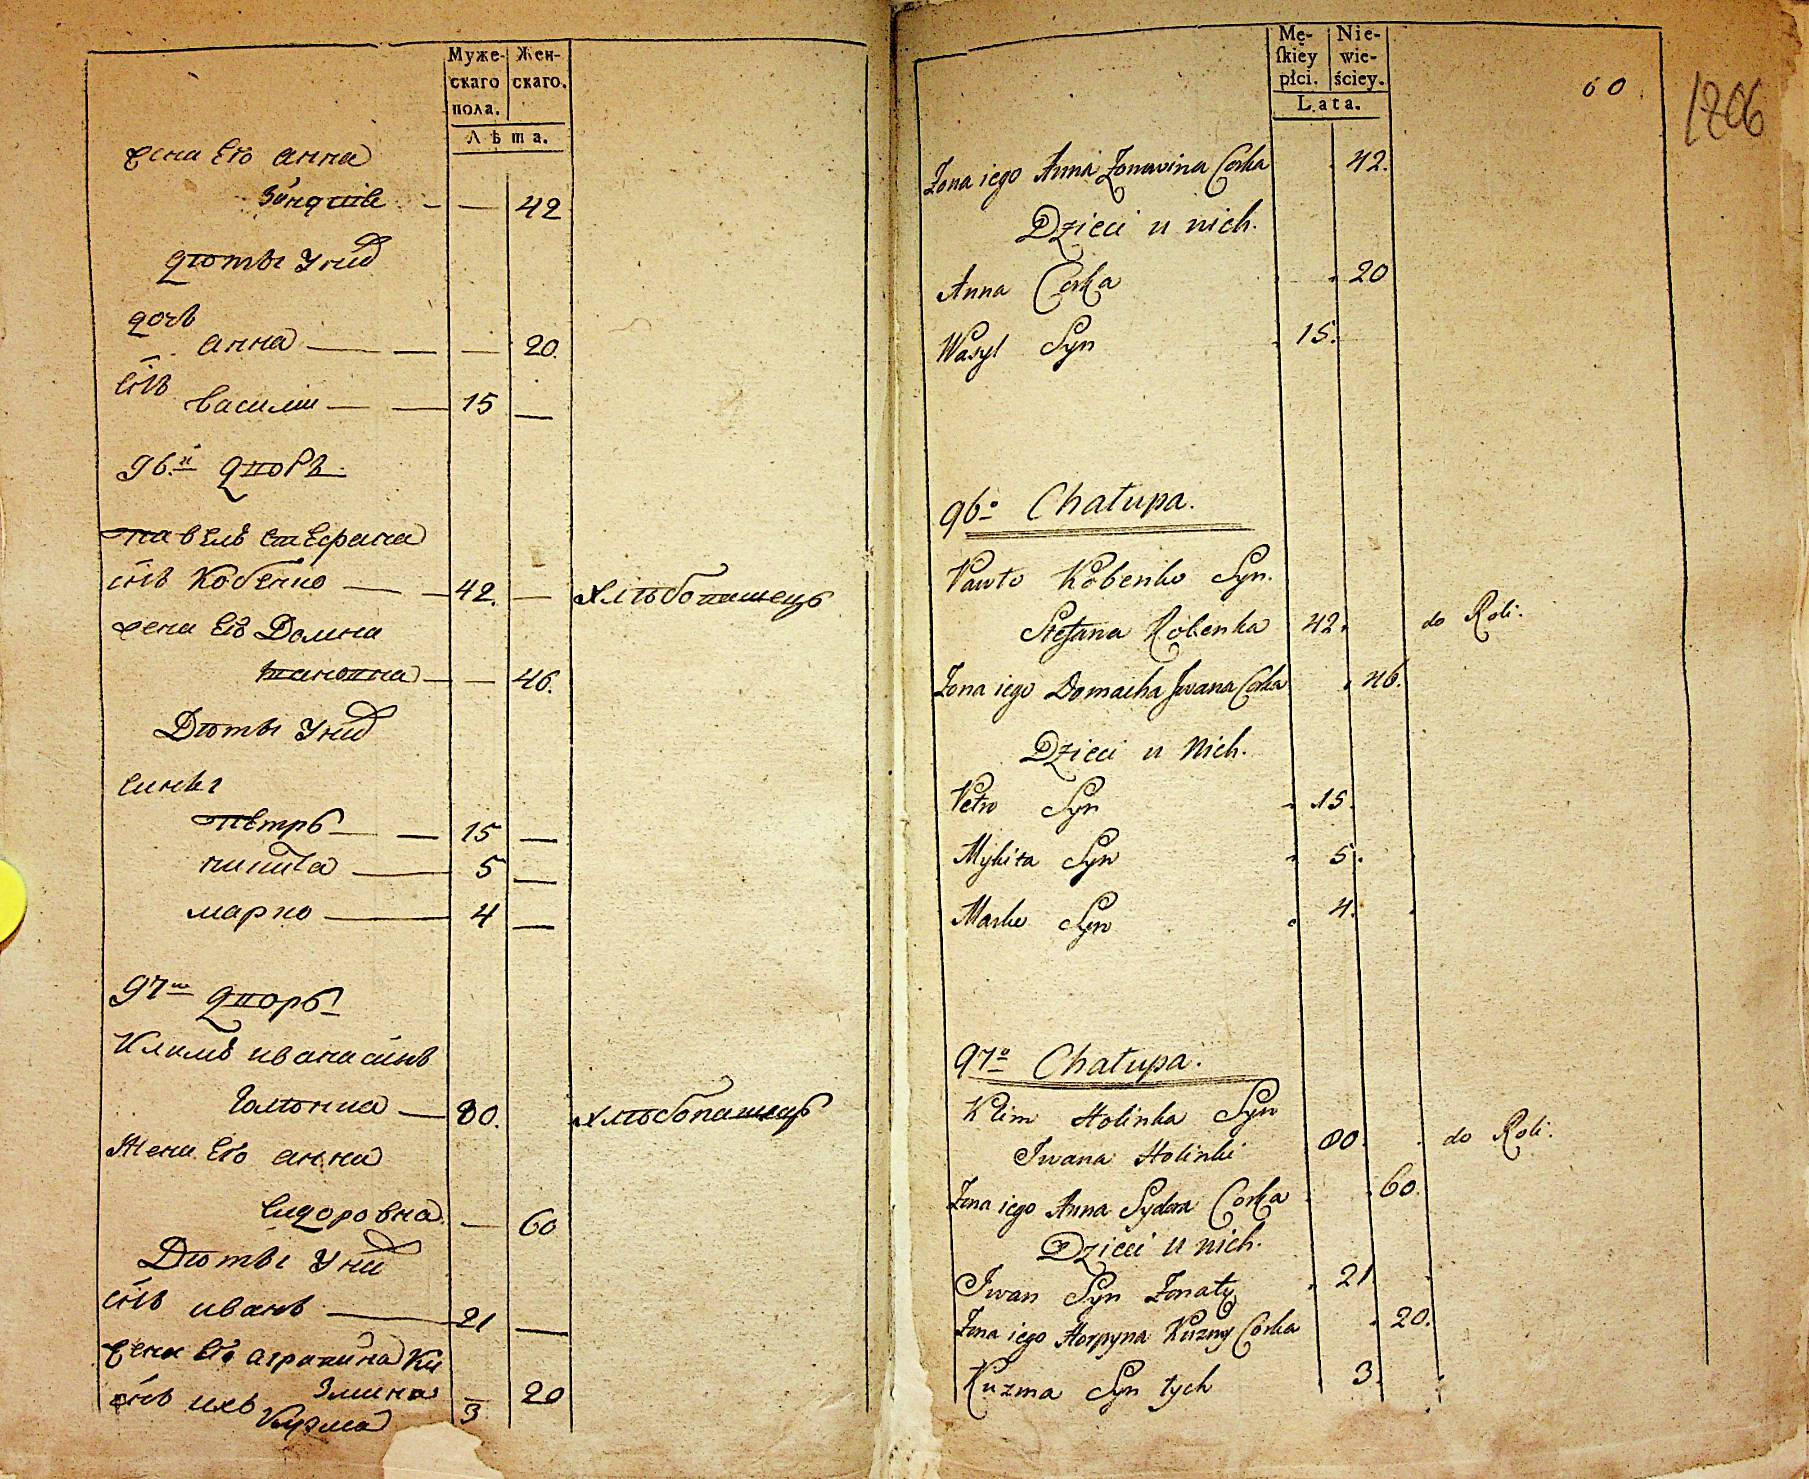 Муже- Жен-
скаго скаго.
пола.
Лѣта.
жена Его анна
42
дѣты У них
дочь
анна 20.
снъ
василии 15
96.й дворъ.
павелъ стефана
снъ Кобенко 42. хлѣбопашецъ
жена Его Домна
46.
Дѣты У них
сины
петръ 15
никита 5
марко 4
97й дворъ
Климъ ивана синъ
Голѣнка 80. хлѣбопашецъ
Жена Его анна
сидоровна 60
Дѣты У них
снъ иванъ 21
жена Его агрипина Ку
змина 20
снъ ихъ Кузма 3
Mę- Nie-
ſkiéy wie-
płci. ściey.
Lata.
60
1806
Żona iego Anna Corka 42.
Dzieci u nich.
Anna Corka 20
Wasyl Syn 15.
96o Chałupa.
Pawło Kobenko Syn.
Stefana Kobenka 42. do Roli.
Żona iego Domacha Jwana Corka 46.
Dzieci u Nich.
Petro Syn 15.
Mykita Syn 5.
Marko Syn 4.
97o Chałupa.
Klim Holinka Syn
Jwana Holinki 80. do Roli.
Żona iego Anna Sydora Corka 60.
Dzieci u nich.
Jwan Syn Żonaty 21.
Żona iego Horpyna Kuzmy Corka 20.
Kuzma Syn tych 3.